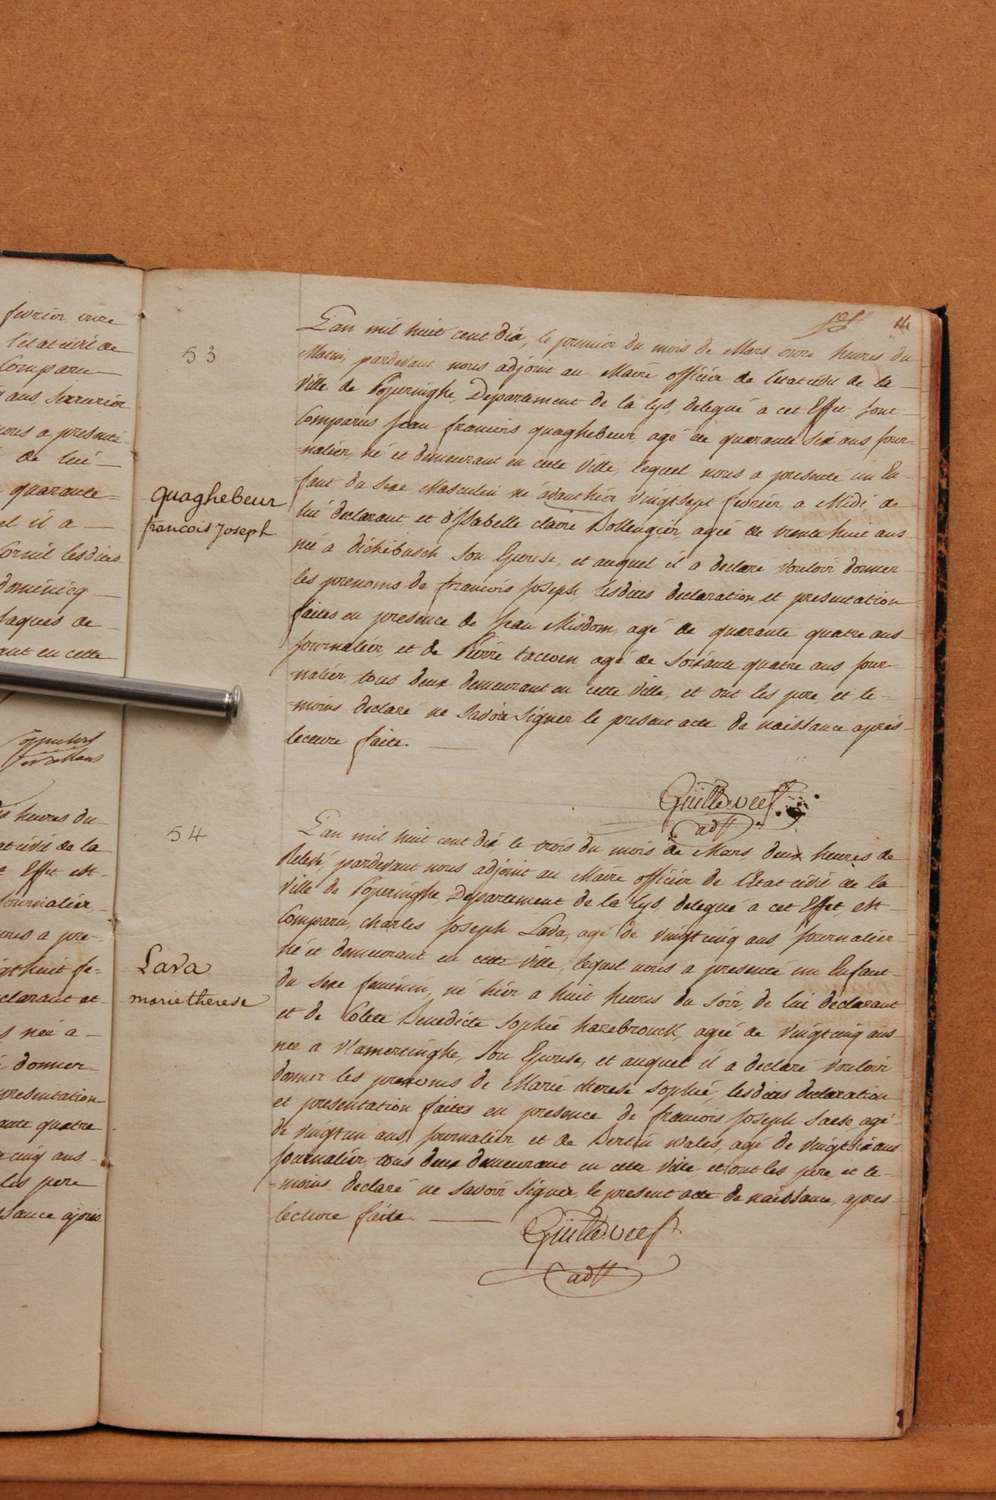 fevrier onze
l'etat civil de
Comparu
ans serrurier
nous a presenté
de lui
quarante
et il a
Cornil lesdites
domeniccq
Jaques de
ant en cette
heures du
at civil de la
Effet est
Journalier
nous a pre-
gt huit fe-
eclarant et
s née a
donner
presentation
ante quatre
cinq ans
les pere
ssance après
14
53
quaghebeur
francois Joseph
L'an mil huit cent dix, le premier du mois de Mars onze heures du
Matin, pardevant nous adjoint au Maire officier de l'etat civil de la
Ville de Poperinghe, Departement de la Lys, delegué a cet Effet, sont
Comparus Jean francois quaghebeur agé de quarante six ans jour-
nalier né et demeurant en cette Ville, lequel nous a presenté un En-
fant du sexe Masculin né avanthier vingt sept fevrier a Midi de
lui declarant et d'Isabelle claire Bollengier agée de trente huit ans
née a Dickebusch son Epouse, et auquel il a declaré vouloir donner
les prenoms de francois Joseph lesdites declaration et presentation
faites en presence de Jean Misdom, agé de quarante quatre ans
Journalier, et de Pierre tacoen agé de soixante quatre ans jour-
nalier, tous deux demeurant en cette Ville, et ont les pere et te-
moins declaré ne savoir signer le present acte de naissance après
lecture faite.
Guilleweef
adt
54
Lava
marie therese
L'an mil huit cent dix le trois du mois de Mars deux heures de
Relevé, pardevant nous adjoint au Maire officier de l'Etat civil de la
Ville de Poperinghe Departement de la Lys delegué a cet Effet est
Comparu, charles Joseph Lava, agé de vingt cinq ans journalier
né et demeurant en cette ville, lequel nous a presenté un Enfant
du sexe feminin, né hier a huit heures du soir, de lui declarant
et de Colete Benedicte Sophie hazebrouck, agée de vingt cinq ans
née a Vlamertinghe, son Epouse, et auquel il a declaré vouloir
donner les prenoms de Marie therese sophie, lesdites declaration
et presentation faites en presence de francois Joseph agé
de vingt un ans, journalier et de Bertin walis, agé de vingt six ans
journalier, tous deux demeurant en cette ville et ont les père et te-
moins declaré ne savoir signer le present acte de naissance, après
lecture faite.
Guilleweef
adt